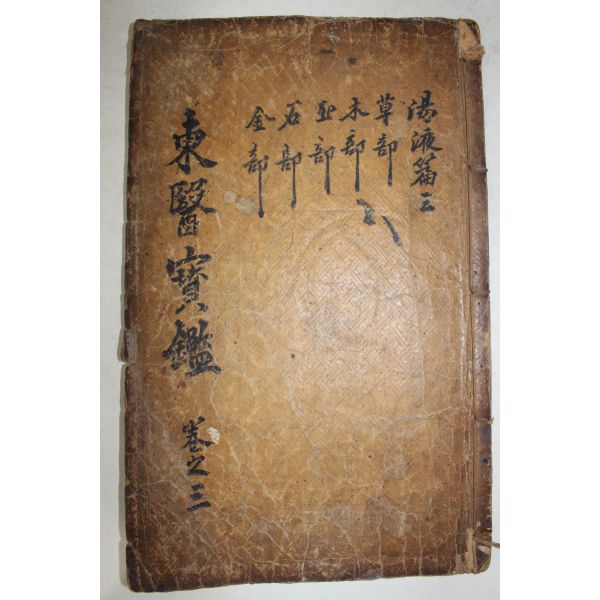 湯液篇三
草部
木部
玉部
石部
金部
東醫寶鑑
卷之三